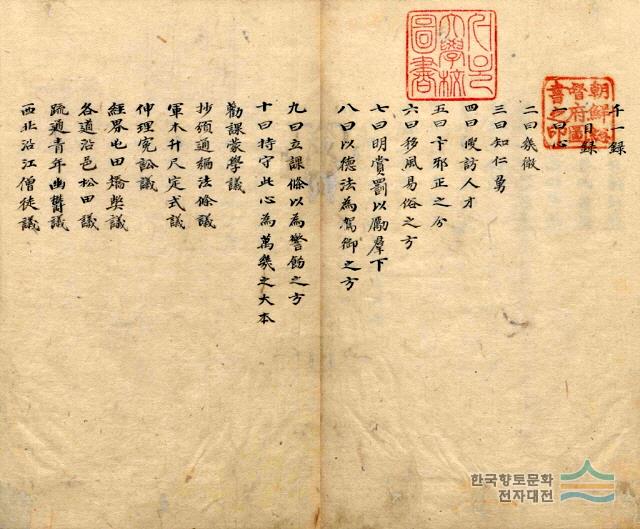 千一録
目録
一曰心
二曰幾微
三曰知仁勇
四曰廋訪人才
五曰卞邪正之分
六曰移風易俗之方
七曰明賞罰以勵羣下
八曰以德法為駕御之方
九曰立課條以為警飭之方
十曰持守此心為萬幾之大本
勸課蒙學議
抄領通編法條議
軍木升尺定式議
伸理寃訟議
經界屯田矯弊議
各道沿邑松田議
疏通青年幽鬱議
西北沿江僧徒議
朝鮮總督府圖書之印
大學校圖書
한국향토문화
전자대전